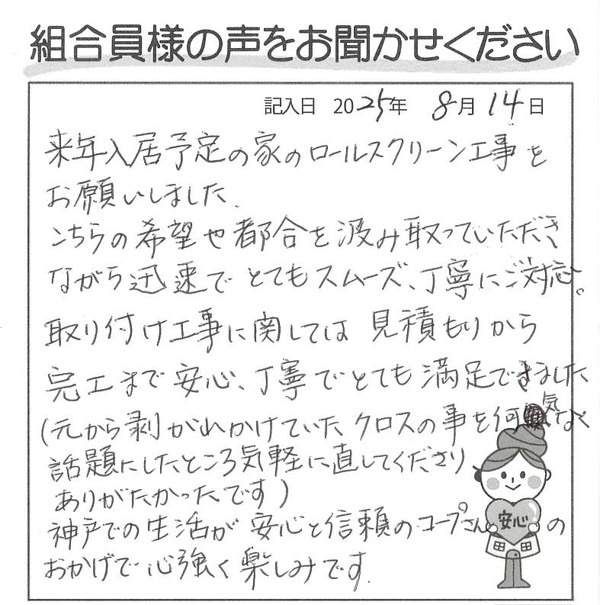 組合員様の声をお聞かせください
記入日 2025年 8月 14日
来年入居予定の家のロールスクリーン工事を
お願いしました.
こちらの希望や都合を汲み取っていただき
ながら迅速でとてもスムーズ、丁寧にご対応。
取り付け工事に関しては見積もりから
完工まで安心、丁寧でとても満足できました
(元から剥がれかけていたクロスの事を何気なく
話題にしたところ気軽に直してくださり
ありがたかったです)
神戸での生活が安心と信頼のコープさんの
おかげで心強く楽しみです.
安心